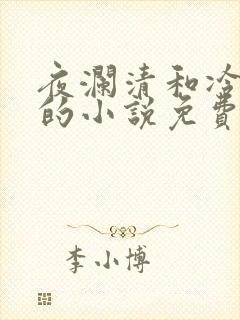 夜瀾清和冷
的小說免費
李小博